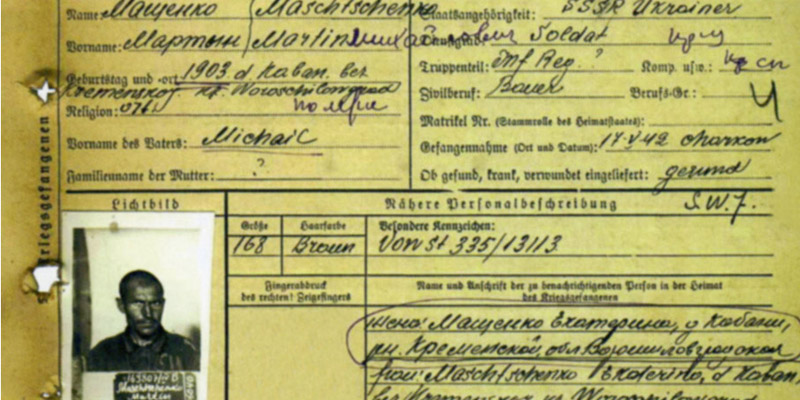 Name: Мащенко / Maschtschenko
Vorname: Мартын / Martin
Geburtstag und -ort 1903. d Kaban. bez
Kremenskoj Woroschilowgrad
Religion: orth.
Vorname des Vaters: Michail
Familienname der Mutter: ?
Staatsangehörigkeit: SSSR Ukrainer
Dienstgrad: Soldat
Truppenteil: Inf Reg. ? Komp. usw.:
Zivilberuf: Bauer Berufs-Gr.: 4
Matrikel Nr. (Stammrolle des Heimatstaates):
Gefangennahme (Ort und Datum): 17 V 42 Charkow
Ob gesund, krank, verwundet eingeliefert: gesund
Kriegsgefangenen
Lichtbild
Nähere Personalbeschreibung
Größe
Haarfarbe
Besondere Kennzeichen:
168
Braun
Von St 335/13113
Fingerabdruck
des rechten! Zeigefingers
Name und Anschrift der zu benachrichtigenden Person in der Heimat
des Kriegsgefangenen
Жена: Мащенко Екатерина, д Кабани,
рн. Кременской, обл Ворошиловградская
Frau: Maschtschenko Ekaterina, d Kaban,
bez Kremenskoj Woroschilowgrad